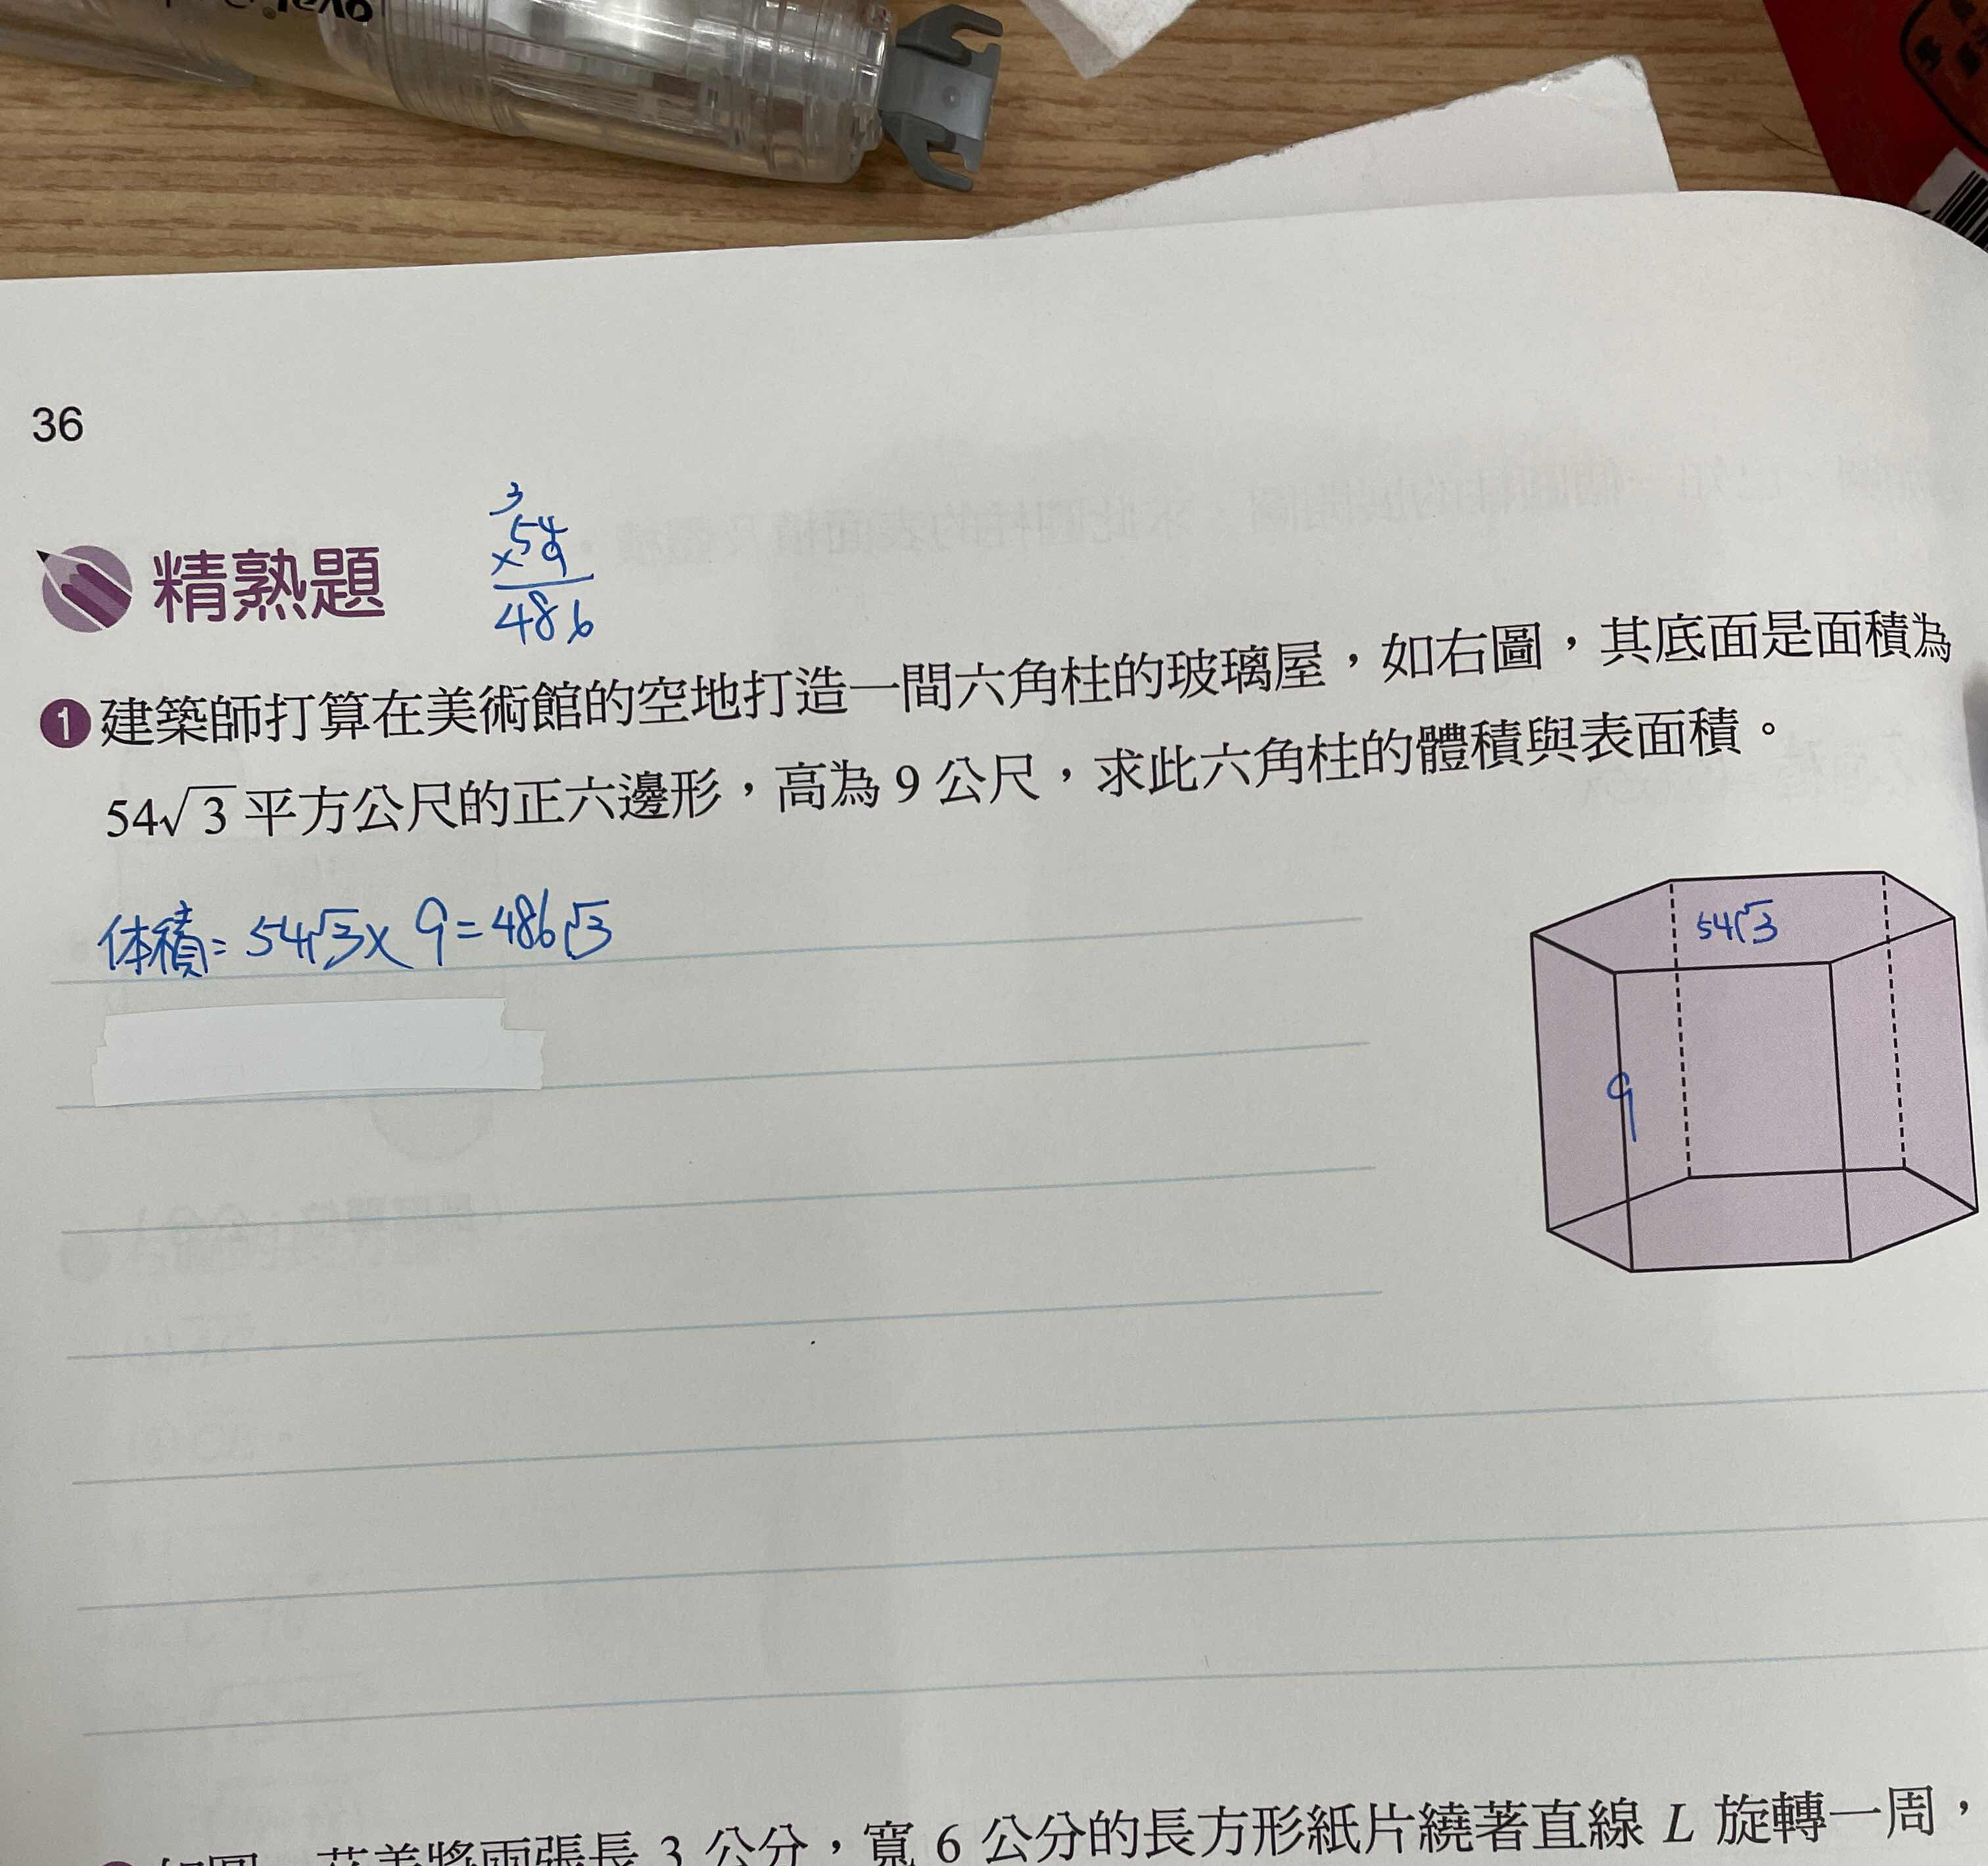 36
3
54
×9
486
精熟題
1 建築師打算在美術館的空地打造一間六角柱的玻璃屋，如右圖，其底面是面積為
54√3平方公尺的正六邊形，高為 9 公尺，求此六角柱的體積與表面積。
体積= 54√3× 9=486√3
54√3
9
將兩張長 3 公分，寬 6 公分的長方形紙片繞著直線 L 旋轉一周，